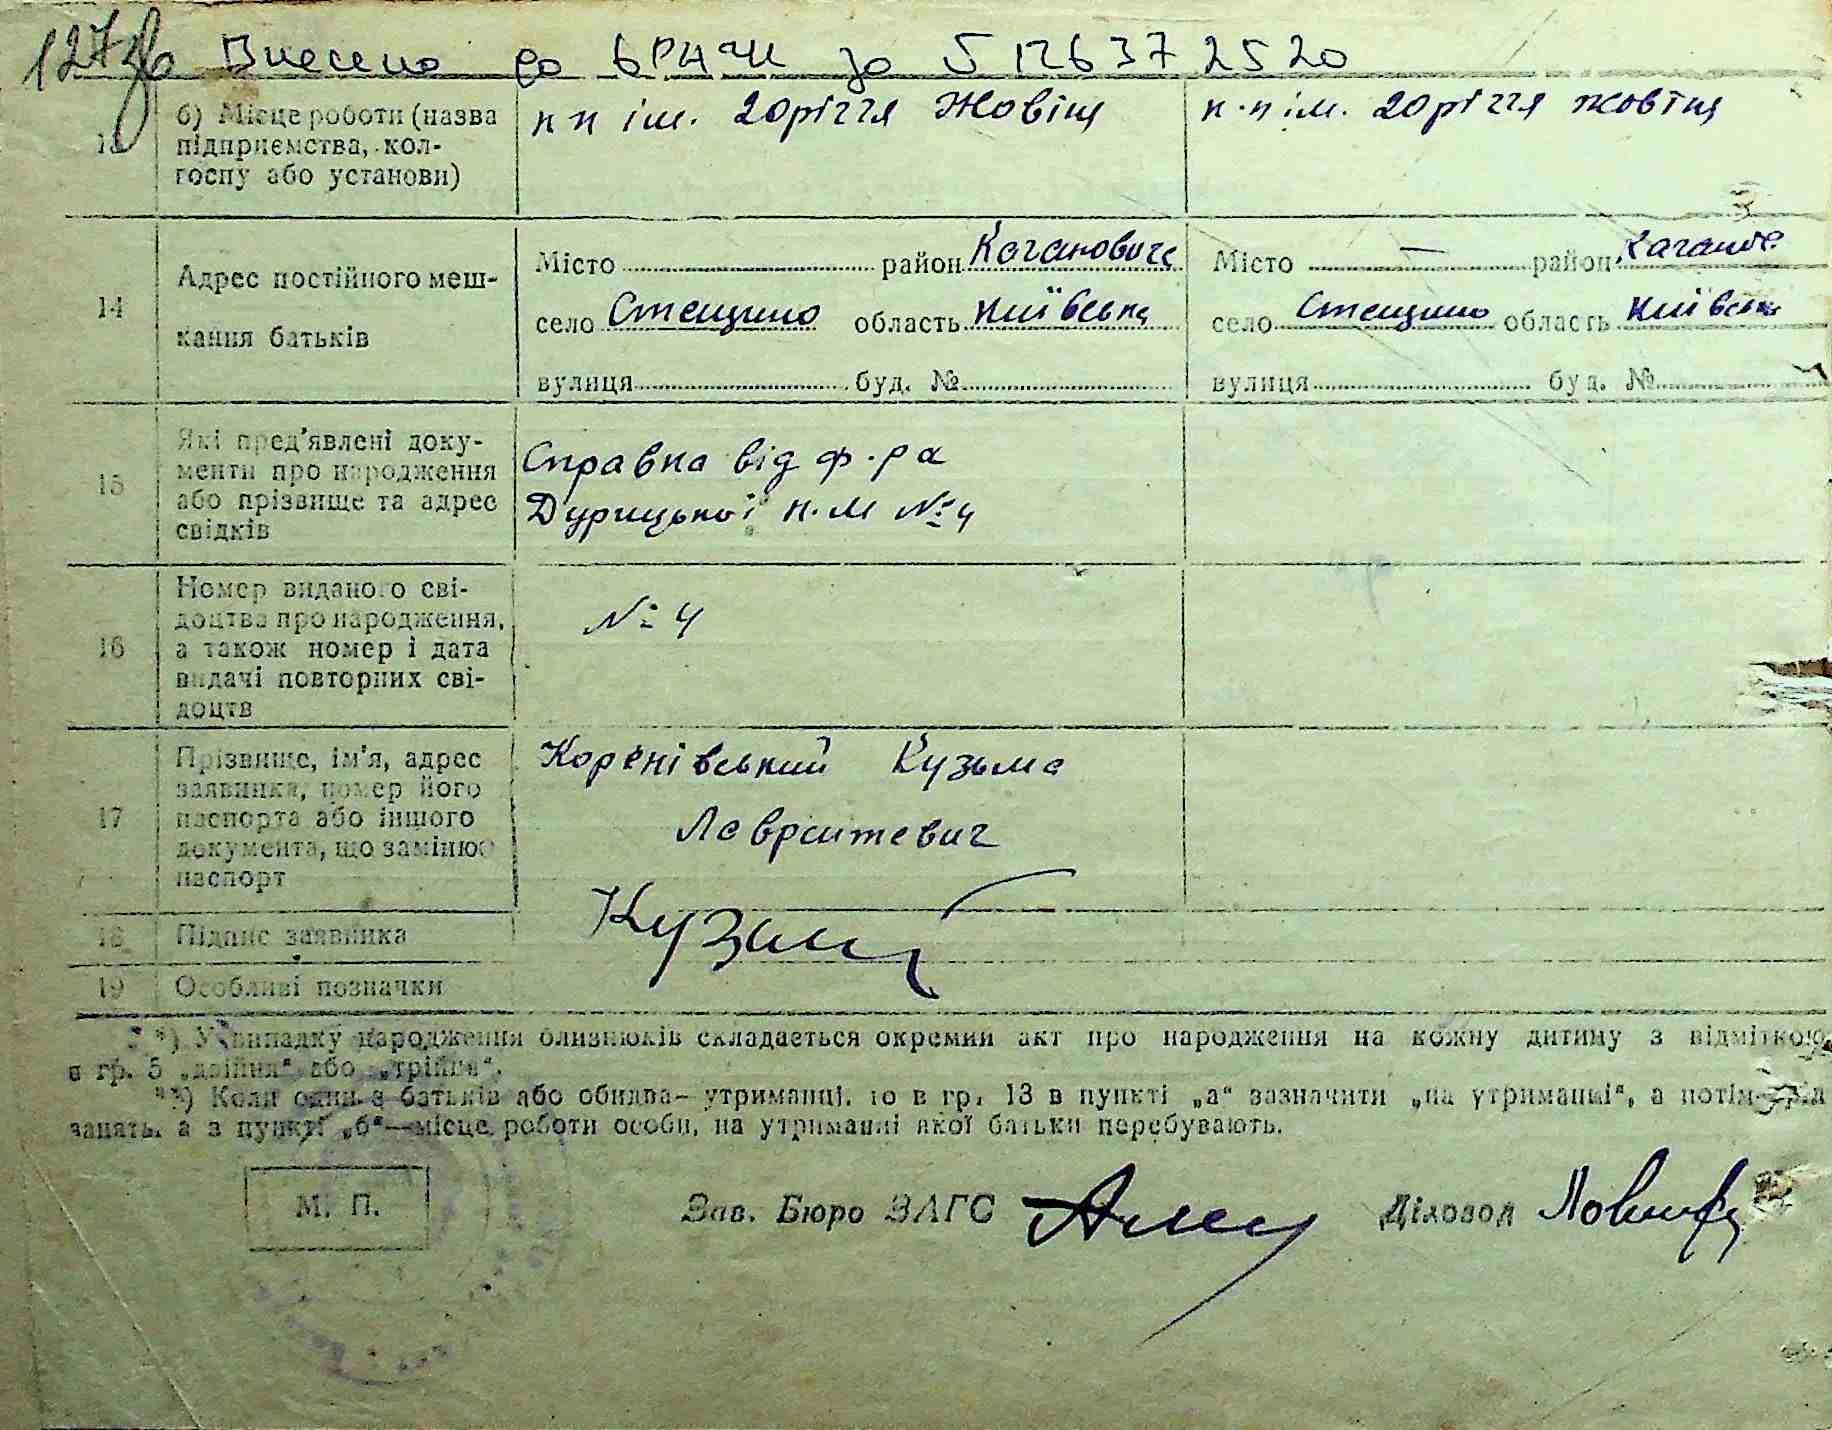 127зв Внесено до ВРАЦС за 512637 2520
13 б) Місце роботи (назва підприємства, колгоспу або установи)
к п ім. 20річчя Жовтня
к.п ім. 20річчя жовтня
14 Адрес постійного мешкання батьків
Місто район Кагановичс
село Стещино область Київська
вулиця буд. №
Місто — район Каганов.
село Стещино область Київська
вулиця буд. №
15 Які пред'явлені документи про народження або прізвище та адрес свідків
Справка від ф-ра
Дурицької н.м №4
16 Номер виданого свідоцтва про народження, а також номер і дата видачі повторних свідоцтв
№ 4
17 Прізвище, ім'я, адрес заявника, номер його паспорта або іншого документа, що замінює паспорт
Коренівський Кузьма
Лаврентевич
18 Підпис заявника
19 Особливі позначки
*) У випадку народження близнюків складається окремий акт про народження на кожну дитину з відміткою
в гр. 5 „двійня“ або „трійня“.
**) Коли один з батьків або обидва— утриманці, то в гр. 13 в пункті „а“ зазначити „на утриманні“, а потім рід
занять, а в пункті „б“—місце роботи особи, на утриманні якої батьки перебувають.
М. П.
Зав. Бюро ЗАГС
Діловод